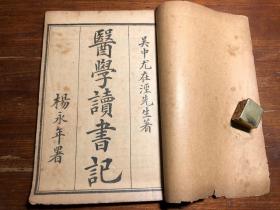 吳中尤在涇先生著
醫學讀書記
楊永年署